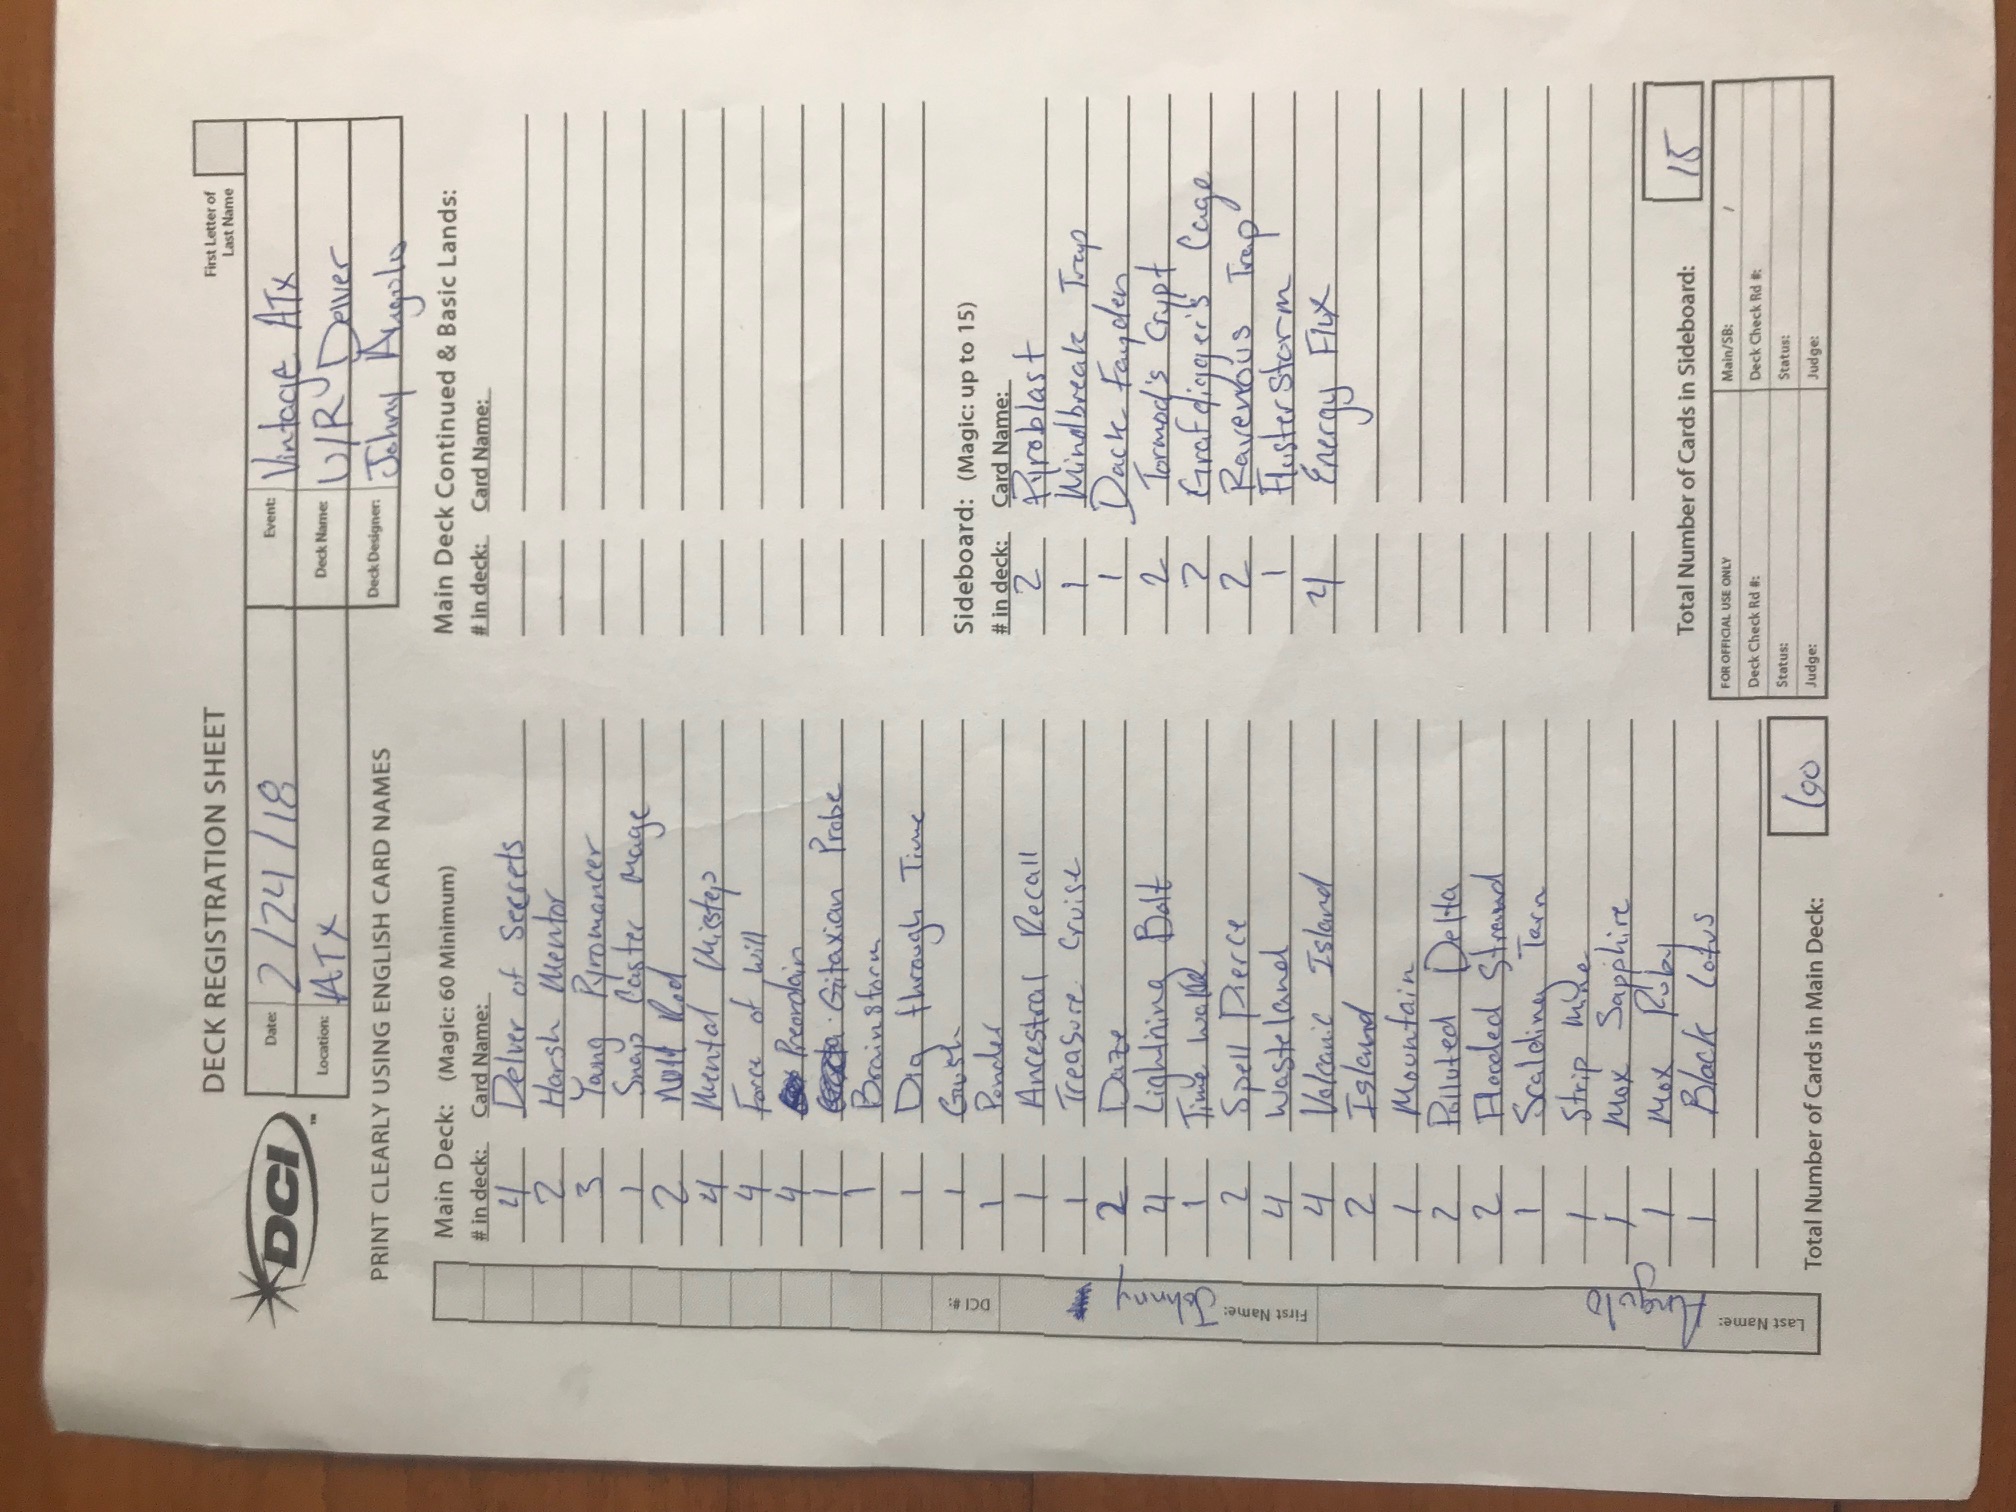 DECK REGISTRATION SHEET
First Letter of
Last Name
DCI
Date: 2/24/18
Event: Vintage ATX
Location: ATX
Deck Name: U/R Delver
Deck Designer: Johny Angulo
PRINT CLEARLY USING ENGLISH CARD NAMES
Main Deck: (Magic: 60 Minimum)
# in deck: Card Name:
4 Delver of Secrets
2 Harsh Mentor
3 Young Pyromancer
1 Snap Caster Mage
2 Null Rod
4 Mental Misstep
4 Force of Will
4 Preordain
1 Gitaxian Probe
1 Brainstorm
1 Dig through Time
1 Gush
1 Ponder
1 Ancestral Recall
1 Treasure Cruise
2 Daze
4 Lightning Bolt
1 Time Walk
2 Spell Pierce
4 Wasteland
4 Volcanic Island
2 Island
1 Mountain
2 Polluted Delta
2 Flooded Strand
1 Scalding Tarn
1 Strip Mine
1 Mox Sapphire
1 Mox Ruby
1 Black Lotus
Total Number of Cards in Main Deck: 60
Main Deck Continued & Basic Lands:
# in deck: Card Name:
Sideboard: (Magic: up to 15)
# in deck: Card Name:
2 Pyroblast
1 Mindbreak Trap
1 Dack Fayden
2 Tormod's Crypt
2 Grafdigger's Cage
2 Ravenous Trap
1 Flusterstorm
4 Energy Flux
Total Number of Cards in Sideboard: 15
FOR OFFICIAL USE ONLY
Main/SB: /
Deck Check Rd #:
Deck Check Rd #:
Status:
Status:
Judge:
Judge:
Last Name: Angulo
First Name: Johnny
DCI #: